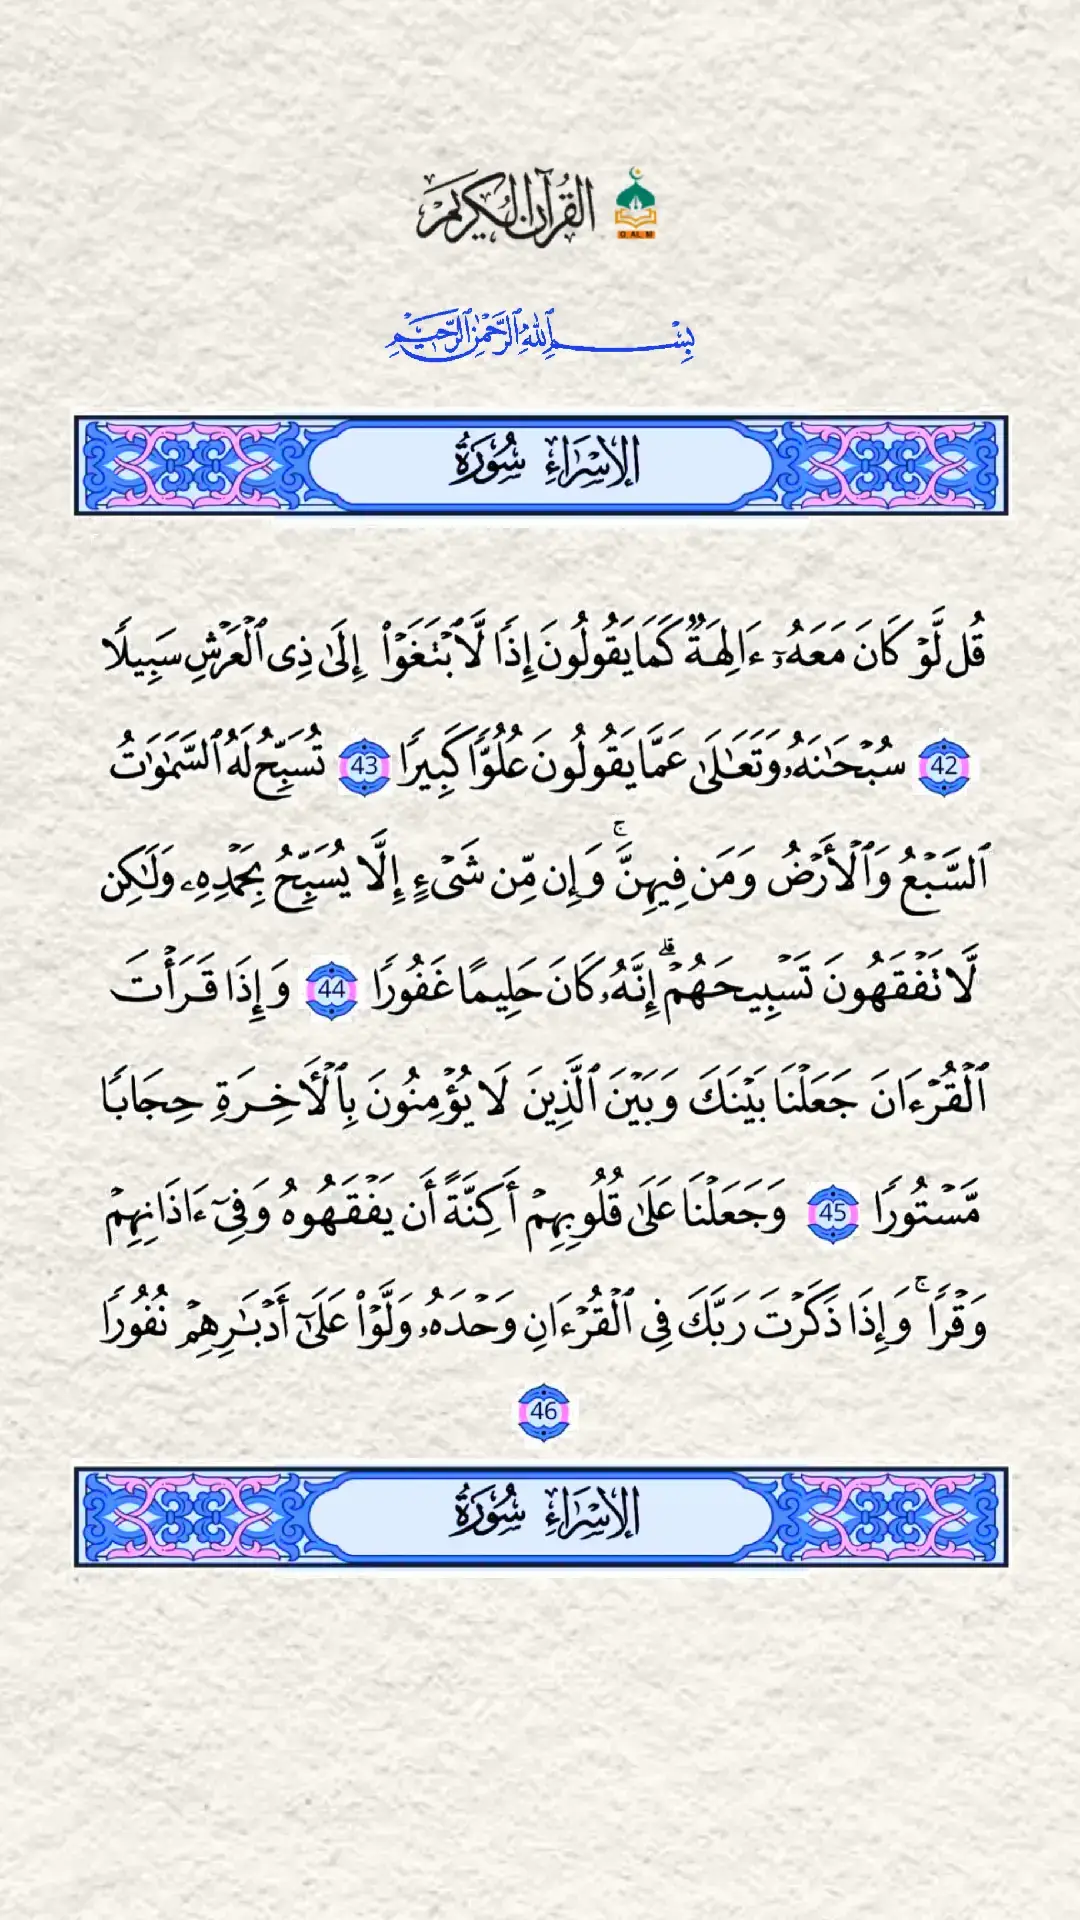 القرآن الكريم
Q. AL. M
بِسْمِ ٱللَّهِ ٱلرَّحْمَٰنِ ٱلرَّحِيمِ
سُورَةُ الإِسْرَاءِ
قُل لَّوْ كَانَ مَعَهُۥٓ ءَالِهَةٌ كَمَا يَقُولُونَ إِذًا لَّٱبْتَغَوْا۟ إِلَىٰ ذِى ٱلْعَرْشِ سَبِيلًا
42 سُبْحَٰنَهُۥ وَتَعَٰلَىٰ عَمَّا يَقُولُونَ عُلُوًّا كَبِيرًا 43 تُسَبِّحُ لَهُ ٱلسَّمَٰوَٰتُ
ٱلسَّبْعُ وَٱلْأَرْضُ وَمَن فِيهِنَّ ۚ وَإِن مِّن شَىْءٍ إِلَّا يُسَبِّحُ بِحَمْدِهِۦ وَلَٰكِن
لَّا تَفْقَهُونَ تَسْبِيحَهُمْ ۗ إِنَّهُۥ كَانَ حَلِيمًا غَفُورًا 44 وَإِذَا قَرَأْتَ
ٱلْقُرْءَانَ جَعَلْنَا بَيْنَكَ وَبَيْنَ ٱلَّذِينَ لَا يُؤْمِنُونَ بِٱلْأَخِرَةِ حِجَابًا
مَّسْتُورًا 45 وَجَعَلْنَا عَلَىٰ قُلُوبِهِمْ أَكِنَّةً أَن يَفْقَهُوهُ وَفِىٓ ءَاذَانِهِمْ
وَقْرًا ۚ وَإِذَا ذَكَرْتَ رَبَّكَ فِى ٱلْقُرْءَانِ وَحْدَهُۥ وَلَّوْا۟ عَلَىٰٓ أَدْبَٰرِهِمْ نُفُورًا
46
سُورَةُ الإِسْرَاءِ